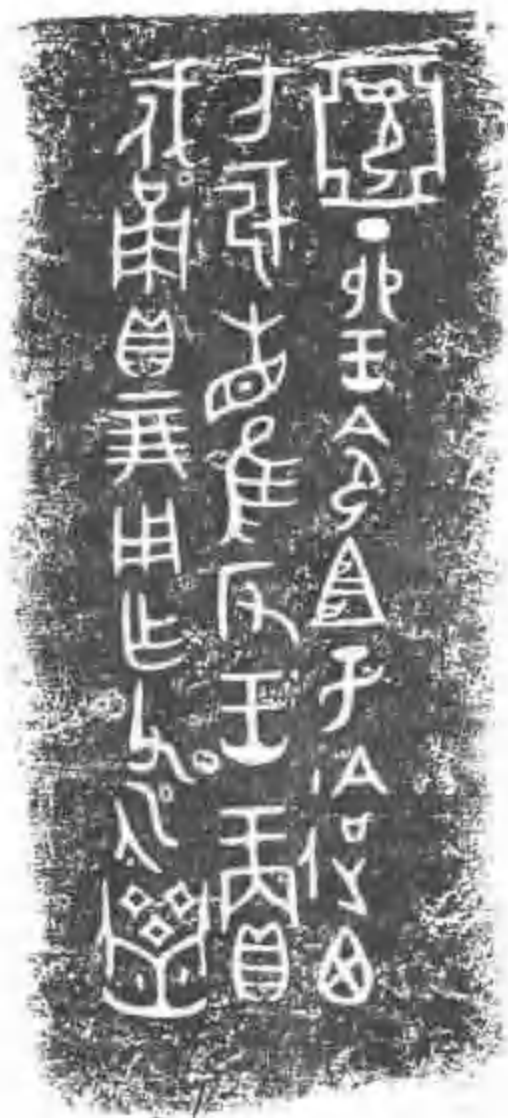 亞印丁卯王令宜子迨西
方于省隹反王賞
戍甬貝二朋用乍父乙齍